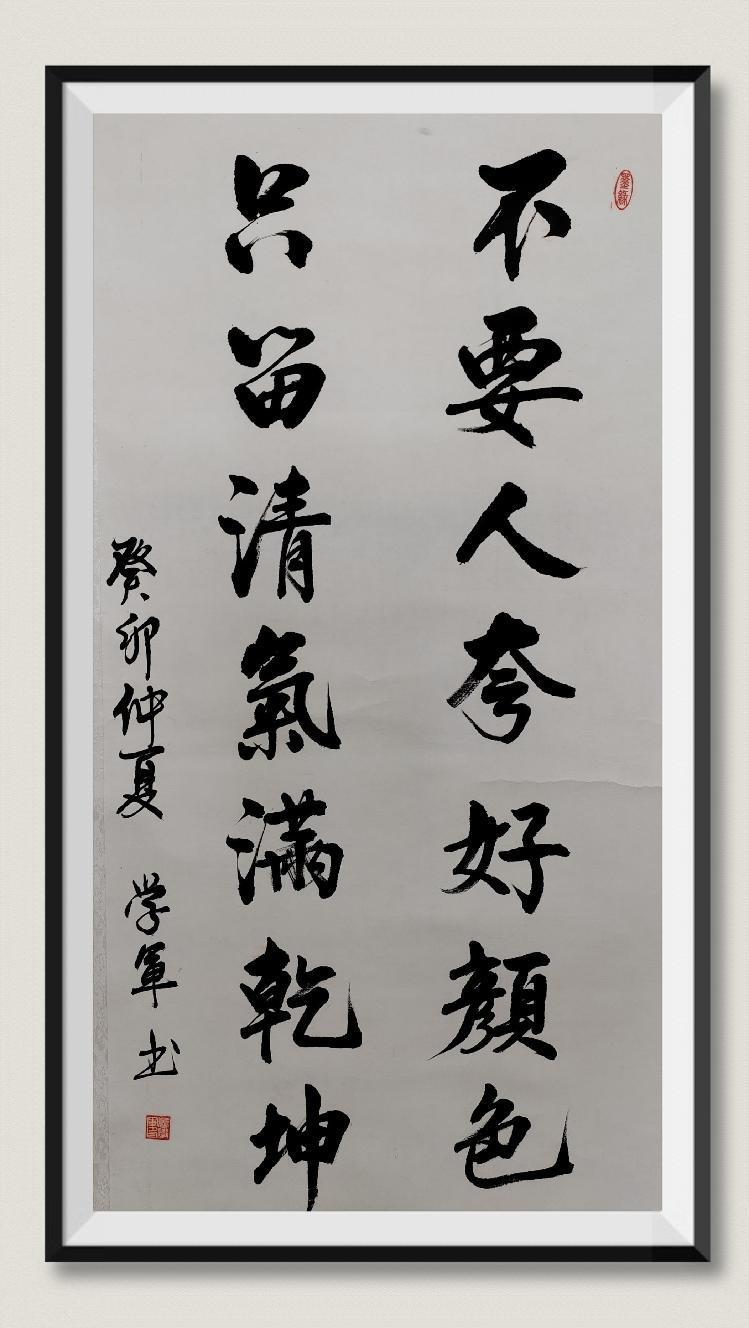 不要人夸好顏色
只留清氣滿乾坤
癸卯仲夏 学軍书